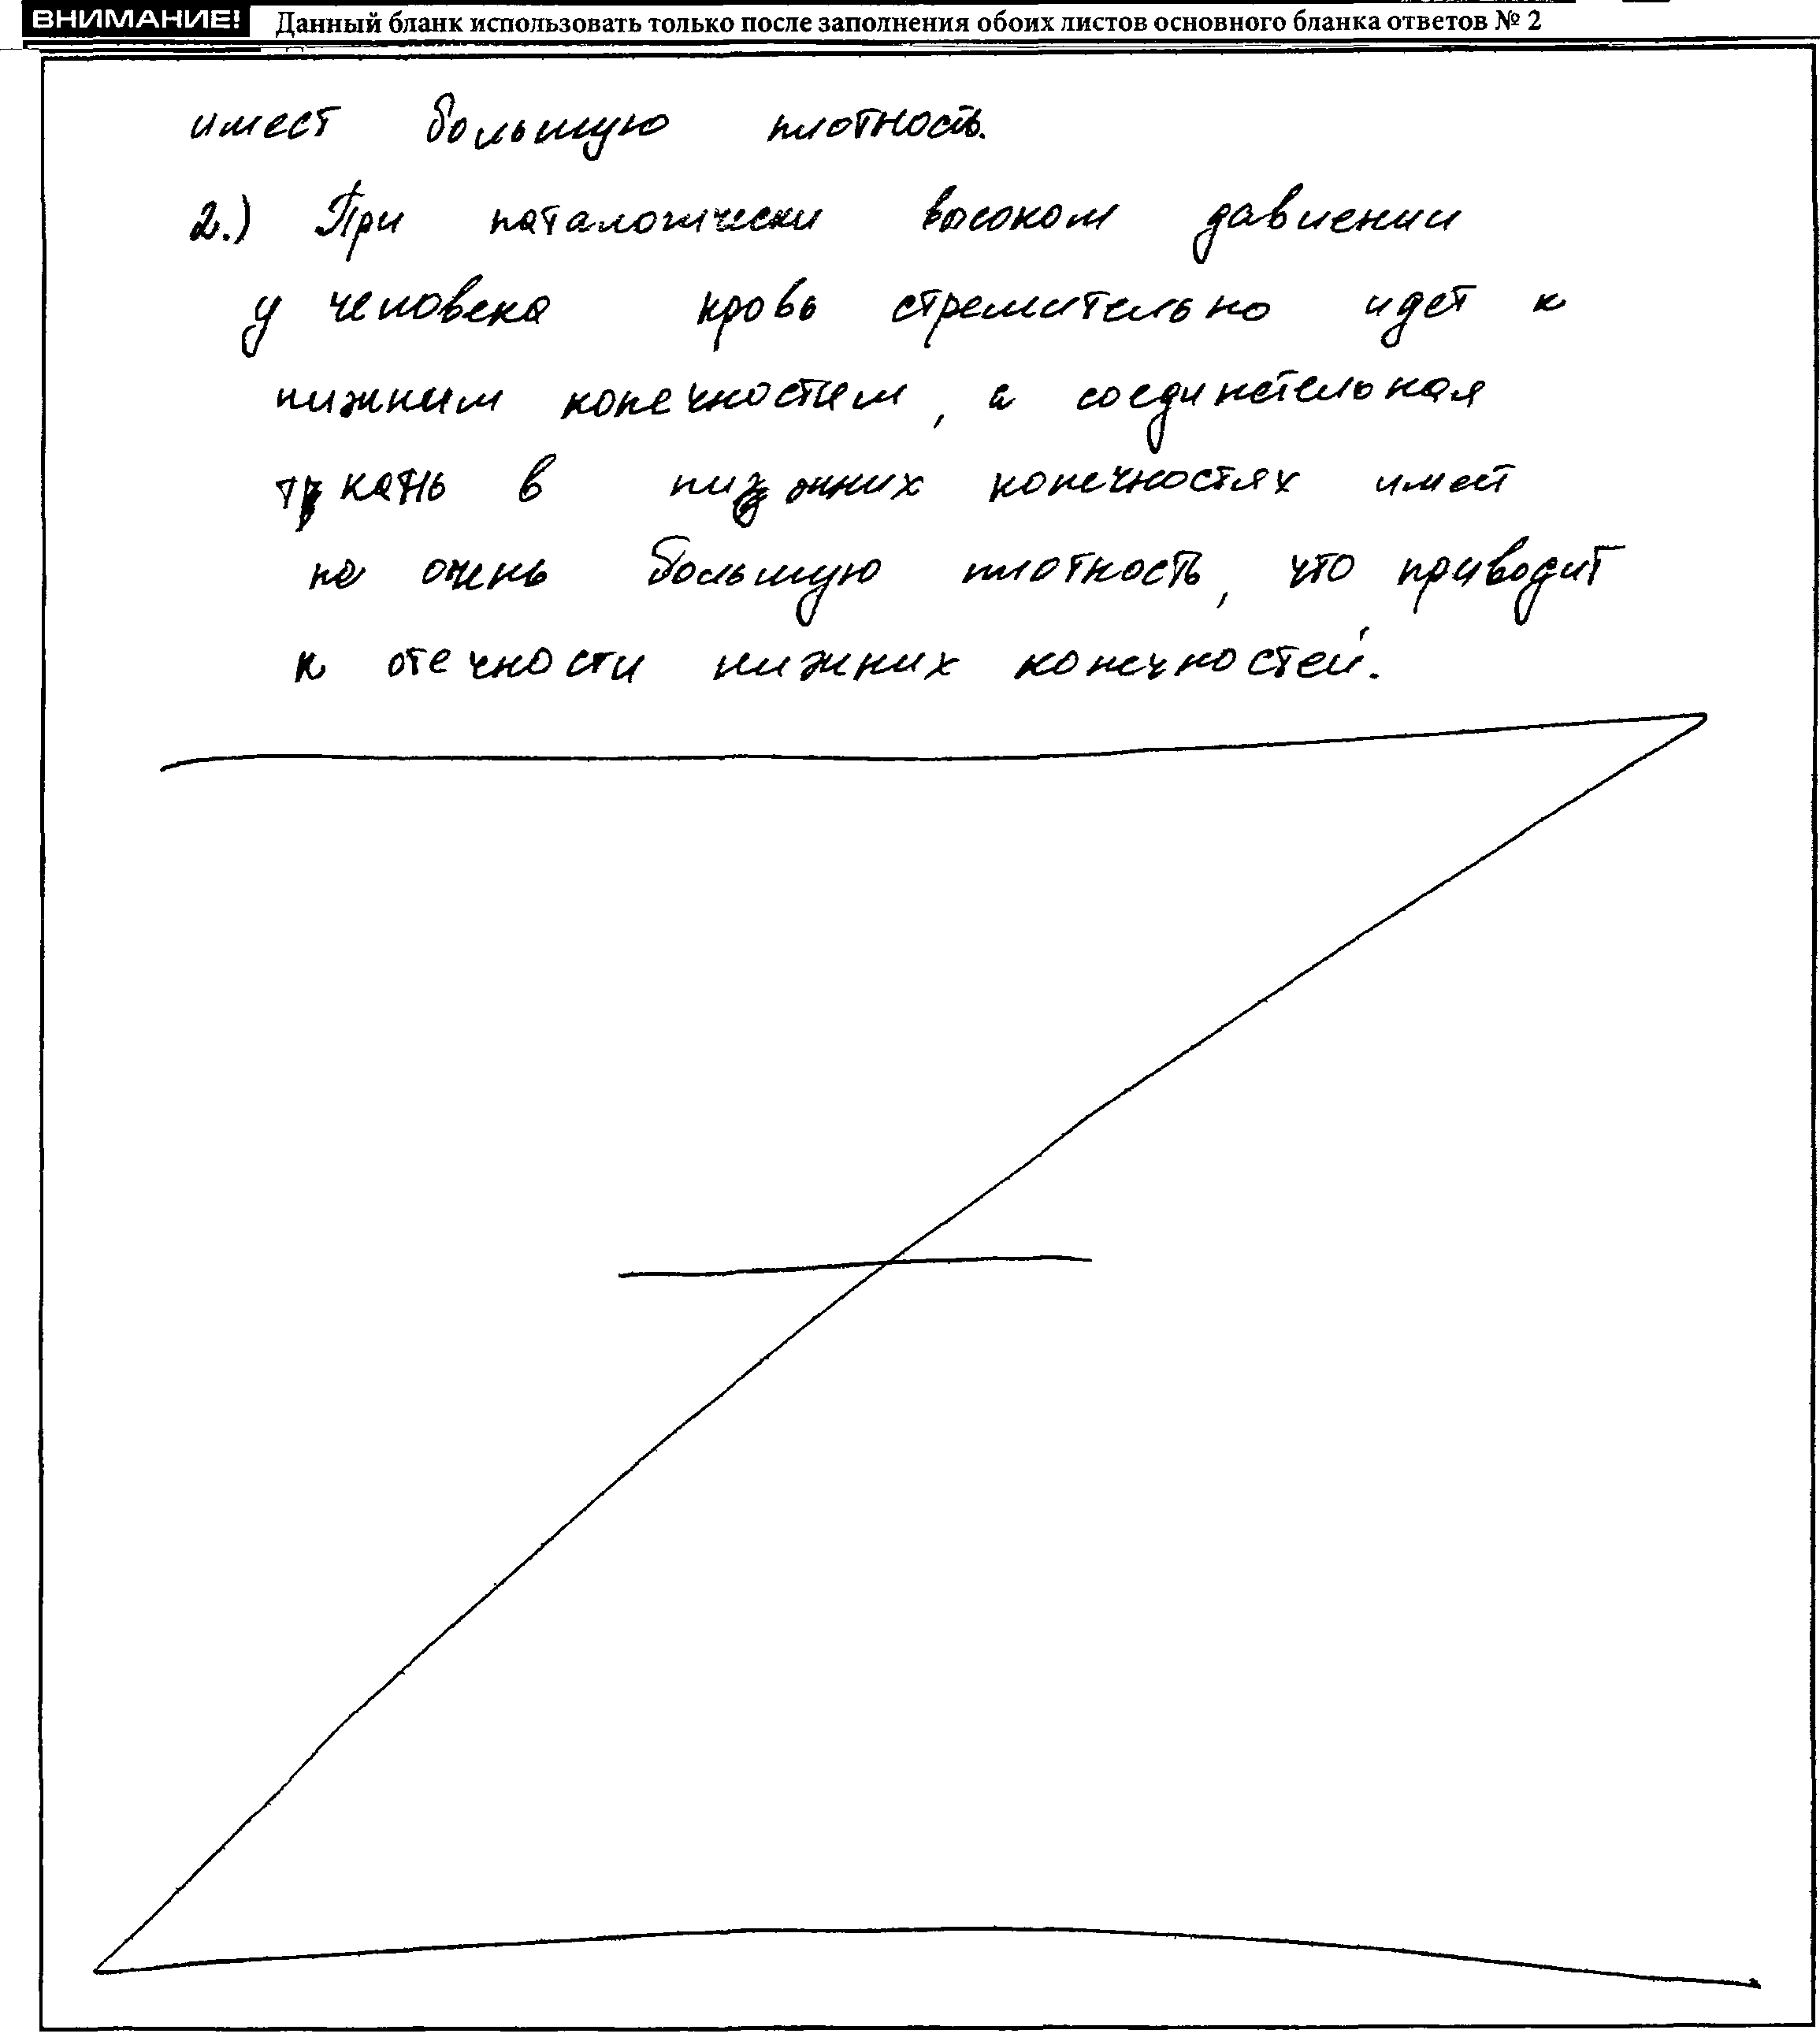 ВНИМАНИЕ! Данный бланк использовать только после заполнения обоих листов основного бланка ответов № 2
имеет большую плотность.
2.) При паталогически высоком давлении
у человека кровь стремительно идет к
нижним конечностям, а соединительная
ткань в нижних конечностях имеет
не очень большую плотность, что приводит
к отечности нижних конечностей.